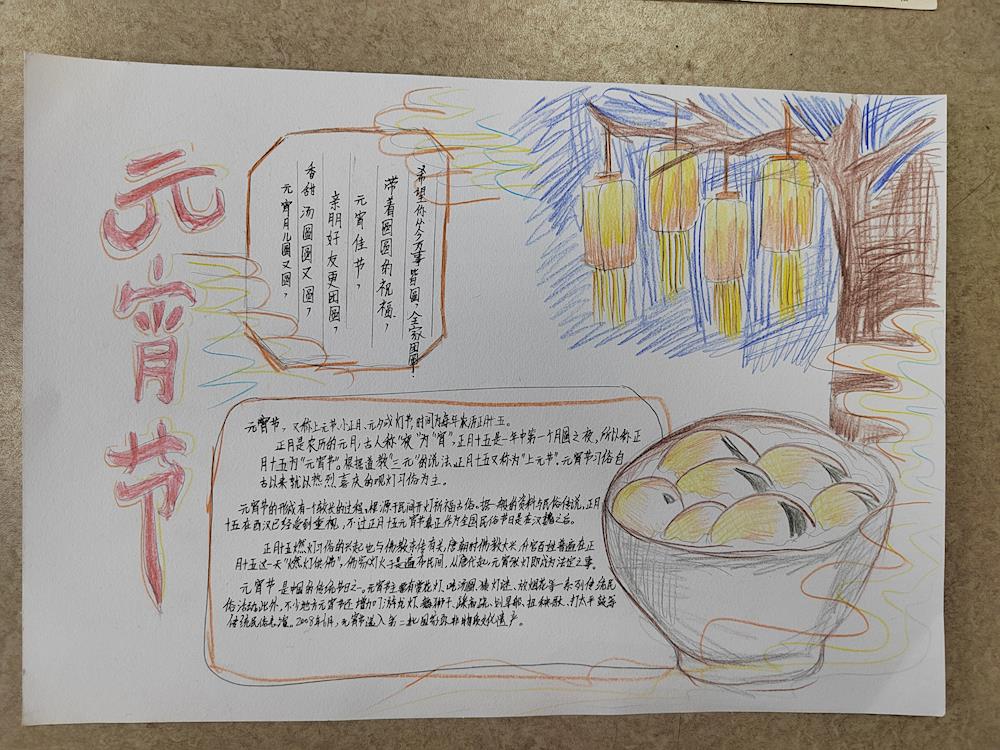 元宵节
元宵月儿圆又圆，
香甜汤圆圆又圆，
亲朋好友更团圆，
元宵佳节，
带着圆圆的祝福，
希望你从今万事皆圆，全家团圆.
元宵节，又称上元节、小正月、元夕或灯节，时间为每年农历正月十五。
正月是农历的元月，古人称"夜"为"宵"，正月十五是一年中第一个月圆之夜，所以称正
月十五为"元宵节"。根据道教"三元"的说法，正月十五又称为"上元节"。元宵节习俗自
古以来就以热烈喜庆的观灯习俗为主。
元宵节的形成有一个较长的过程，根源于民间开灯祈福古俗。据一般的资料与民俗传说，正月
十五在西汉已经受到重视，不过正月十五元宵节真正作为全国民俗节日是在汉魏之后。
正月十五燃灯习俗的兴起也与佛教东传有关，唐朝时佛教大兴，仕官百姓普遍在正
月十五这一天"燃灯供佛"，佛家灯火于是遍布民间，从唐代起，元宵张灯即成为法定之事。
元宵节是中国的传统节日之一。元宵节主要有赏花灯、吃汤圆、猜灯谜、放烟花等一系列传统民
俗活动。此外，不少地方元宵节还增加了游龙灯、舞狮子、踩高跷、划旱船、扭秧歌、打太平鼓等
传统民俗表演。2008年6月，元宵节选入第二批国家级非物质文化遗产。